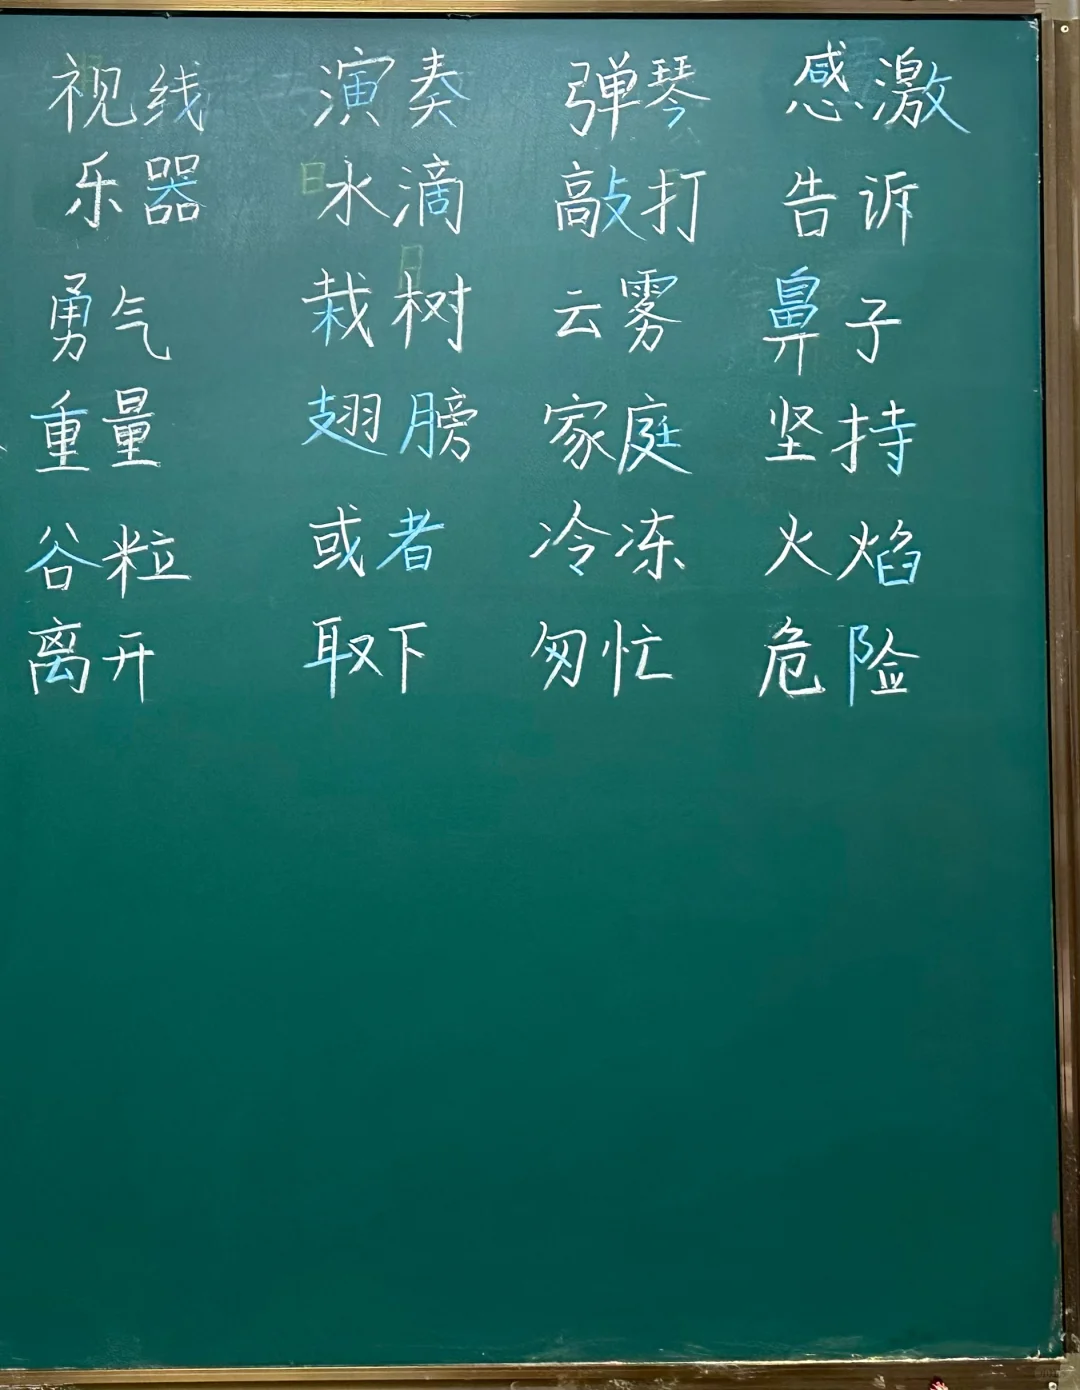 视线 演奏 弹琴 感激
乐器 水滴 敲打 告诉
勇气 栽树 云雾 鼻子
重量 翅膀 家庭 坚持
谷粒 或者 冷冻 火焰
离开 取下 匆忙 危险